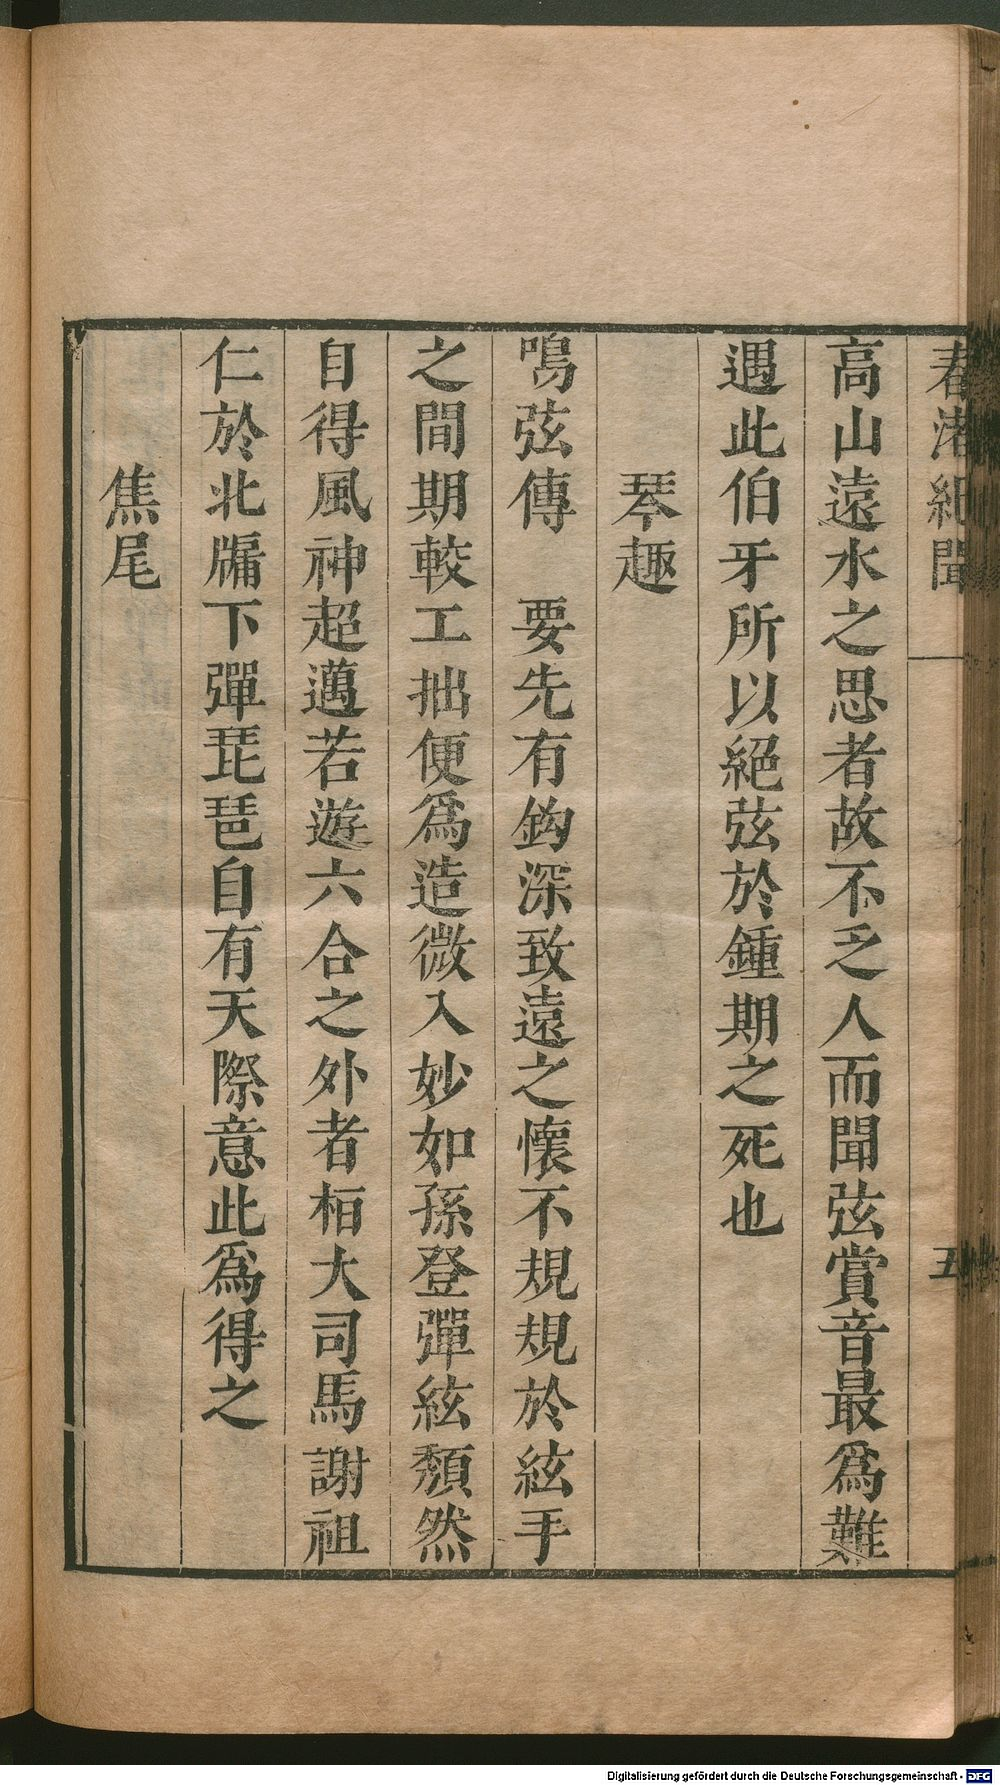 春渚紀聞
五
高山遠水之思者故不乏人而聞弦賞音最爲難
遇此伯牙所以絕弦於鍾期之死也
琴趣
鳴弦傳　要先有鈎深致遠之懷不規規於絃手
之間期較工拙便爲造微入妙如孫登彈絃頹然
自得風神超邁若遊六合之外者桓大司馬謝祖
仁於北牖下彈琵琶自有天際意此爲得之
焦尾
Digitalisierung gefördert durch die Deutsche Forschungsgemeinschaft - DFG